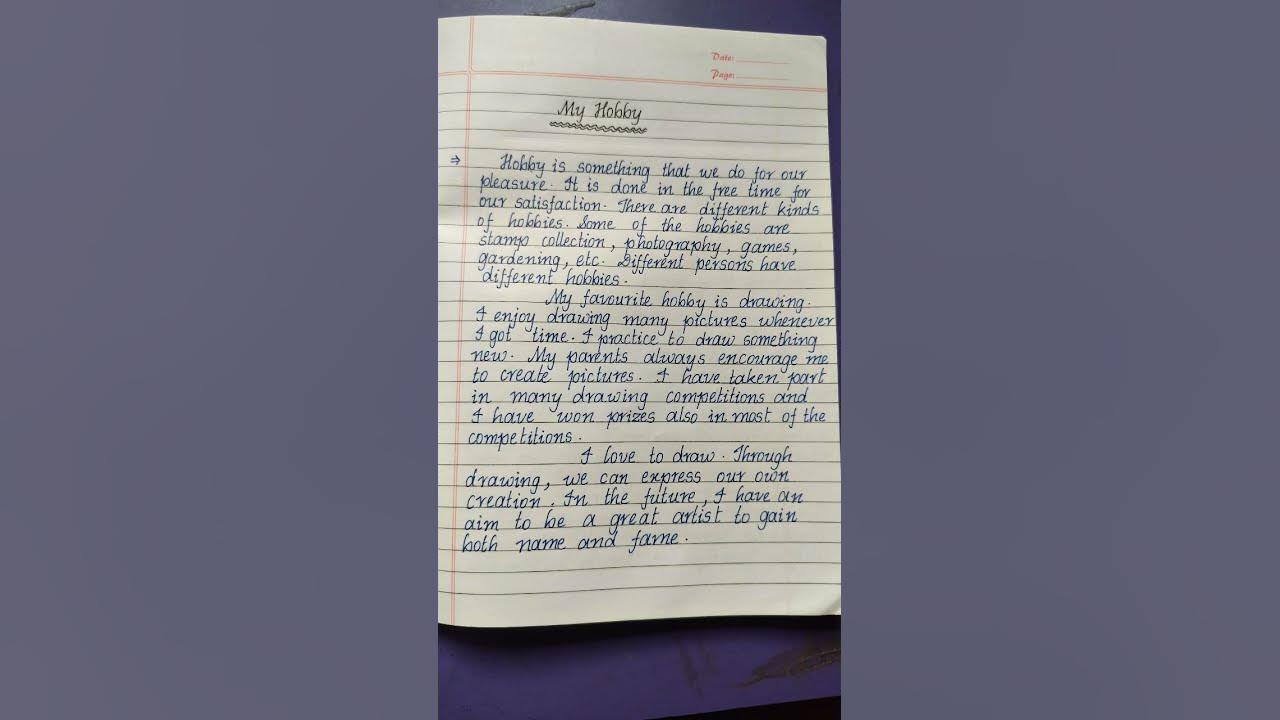 Date:
Page:
My Hobby
⇒ Hobby is something that we do for our
pleasure. It is done in the free time for
our satisfaction. There are different kinds
of hobbies. Some of the hobbies are
stamp collection, photography, games,
gardening, etc. Different persons have
different hobbies.
My favourite hobby is drawing.
I enjoy drawing many pictures whenever
I got time. I practice to draw something
new. My parents always encourage me
to create pictures. I have taken part
in many drawing competitions and
I have won prizes also in most of the
competitions.
I love to draw. Through
drawing, we can express our own
creation. In the future, I have an
aim to be a great artist to gain
both name and fame.